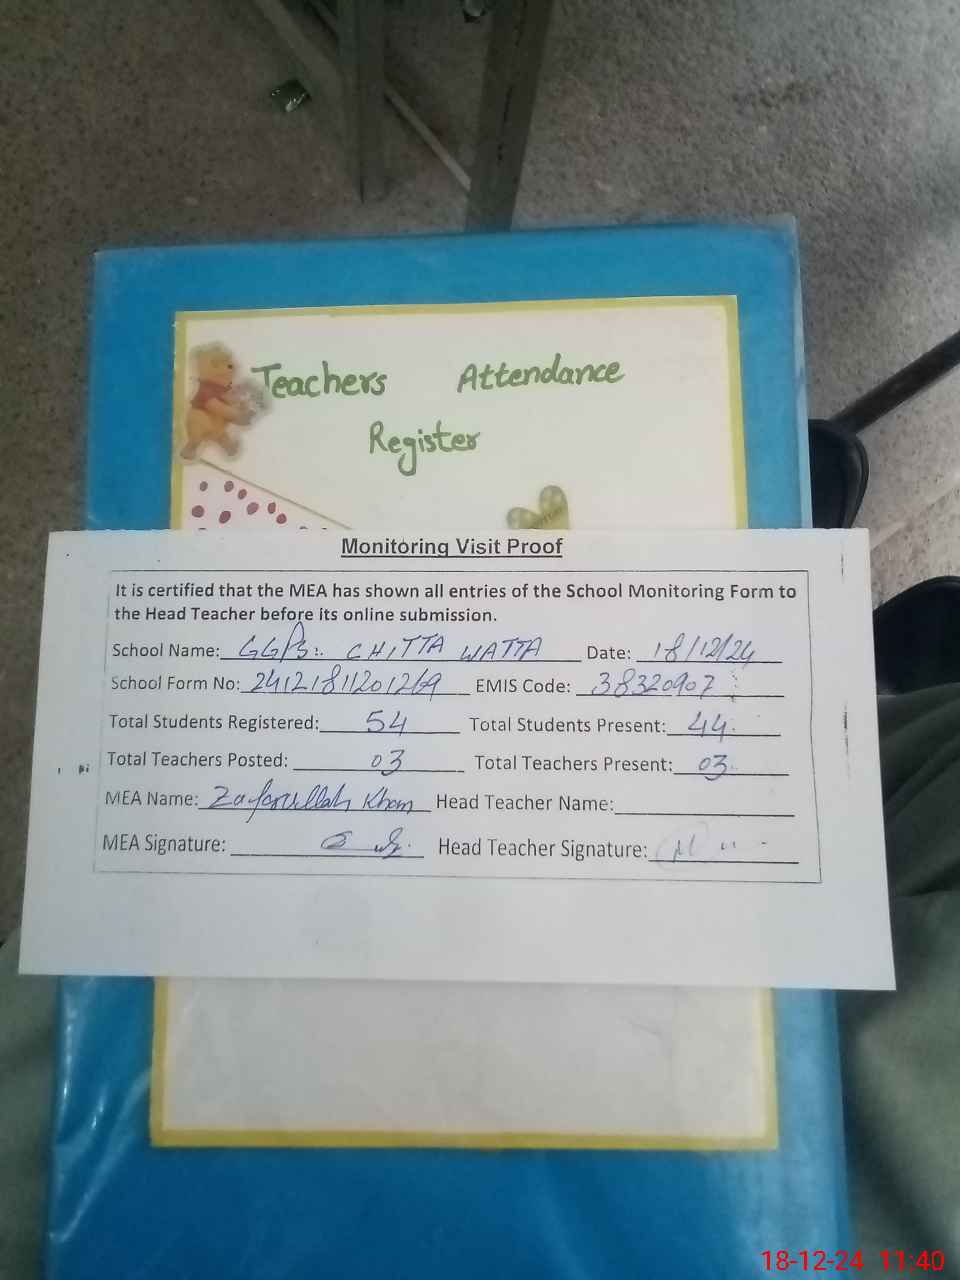 Teachers Attendance
Register
Monitoring Visit Proof
It is certified that the MEA has shown all entries of the School Monitoring Form to
the Head Teacher before its online submission.
School Name: GGPS: CHITTA WATTA Date: 18/12/24
School Form No: 24121811201269 EMIS Code: 38320907
Total Students Registered: 54 Total Students Present: 44
Total Teachers Posted: 03 Total Teachers Present: 03
MEA Name: Zafarullah Khan Head Teacher Name:
MEA Signature: Head Teacher Signature:
18-12-24 11:40